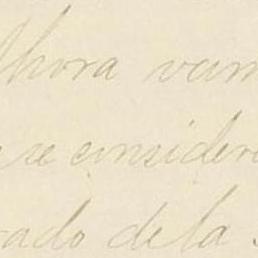 Ahora vam
se consider
rado de la